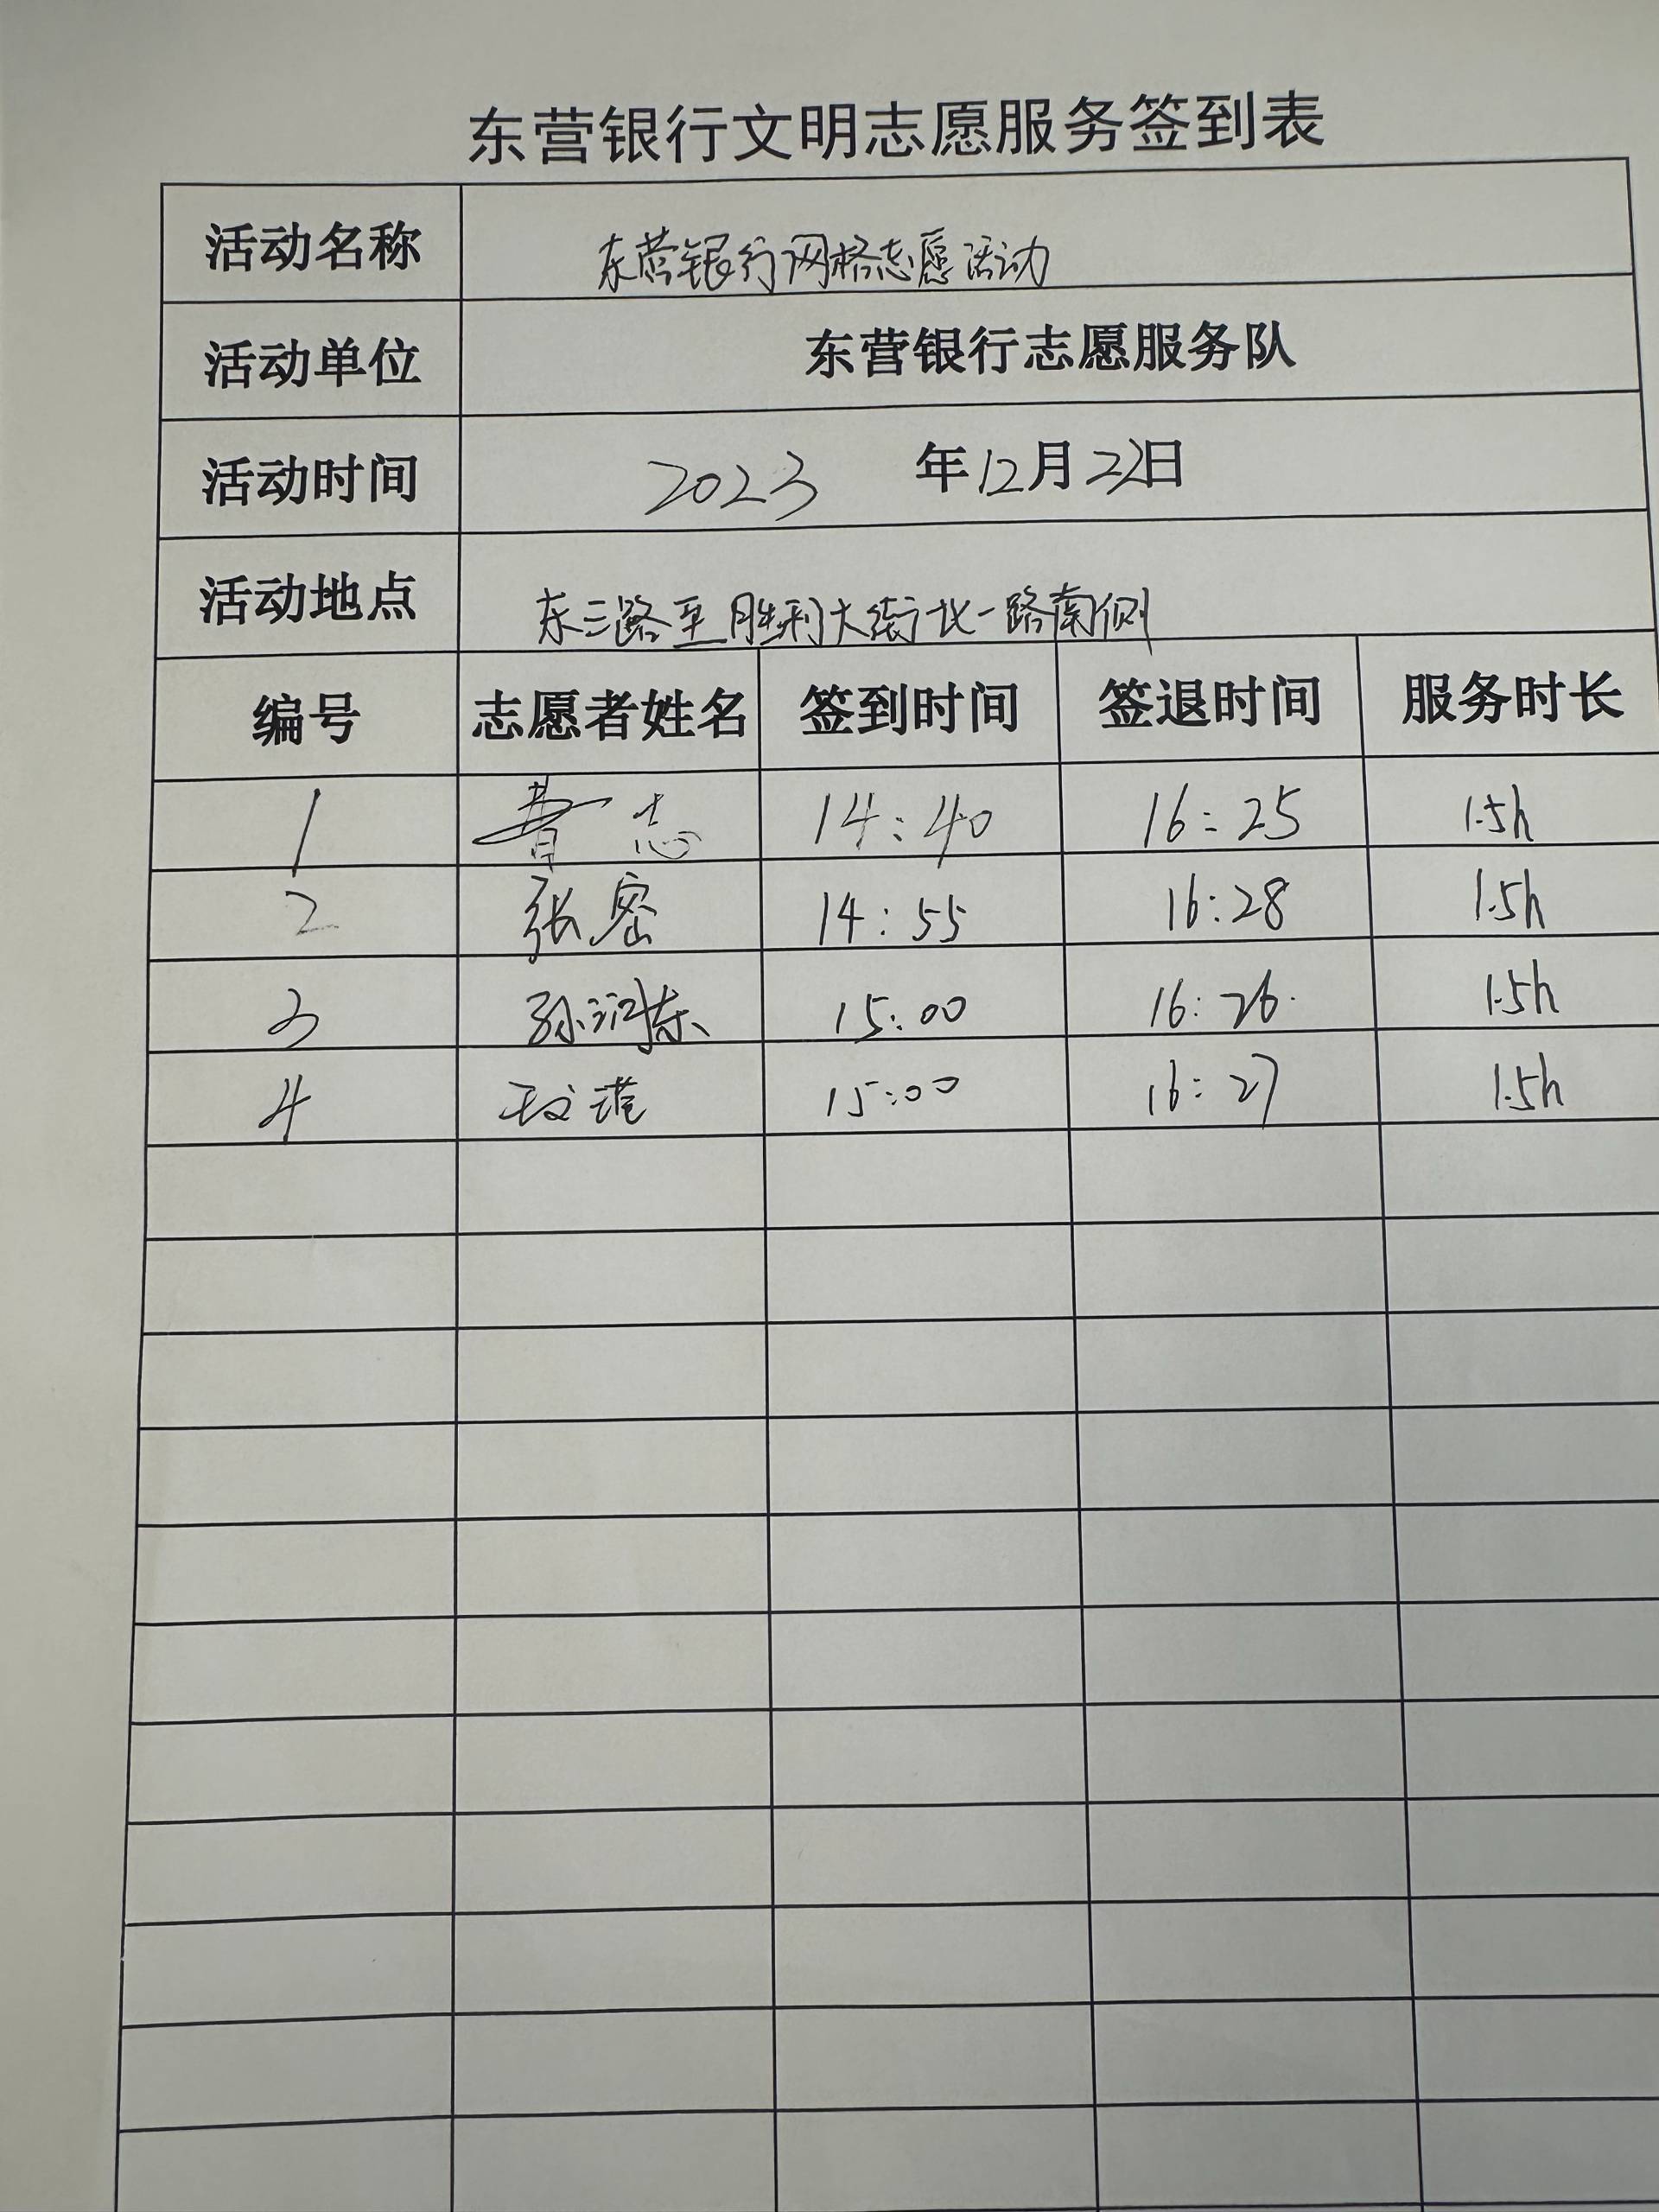 东营银行文明志愿服务签到表
活动名称 东营银行网格志愿活动
活动单位 东营银行志愿服务队
活动时间 2023 年12月22日
活动地点 东三路至胜利大街北一路南侧
编号 志愿者姓名 签到时间 签退时间 服务时长
1 曹志 14:40 16:25 1.5h
2 张密 14:55 16:28 1.5h
3 孙润东 15:00 16:26 1.5h
4 15:00 16:27 1.5h